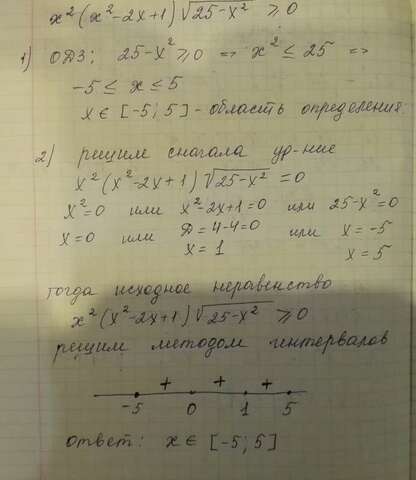 x²(x²-2x+1)√25-x² ≥0
1) ОДЗ: 25-x²≥0 => x² ≤ 25 =>
-5 ≤ x ≤ 5
x∈[-5;5] - область определения.
2) решим сначала ур-ние
x²(x²-2x+1)√25-x² =0
x²=0 или x²-2x+1=0 или 25-x²=0
x=0 или D=4-4=0 или x=-5
x=1 x=5
тогда исходное неравенство
x²(x²-2x+1)√25-x² ≥0
решим методом интервалов
+ + +
-5 0 1 5
ответ: x∈ [-5;5]